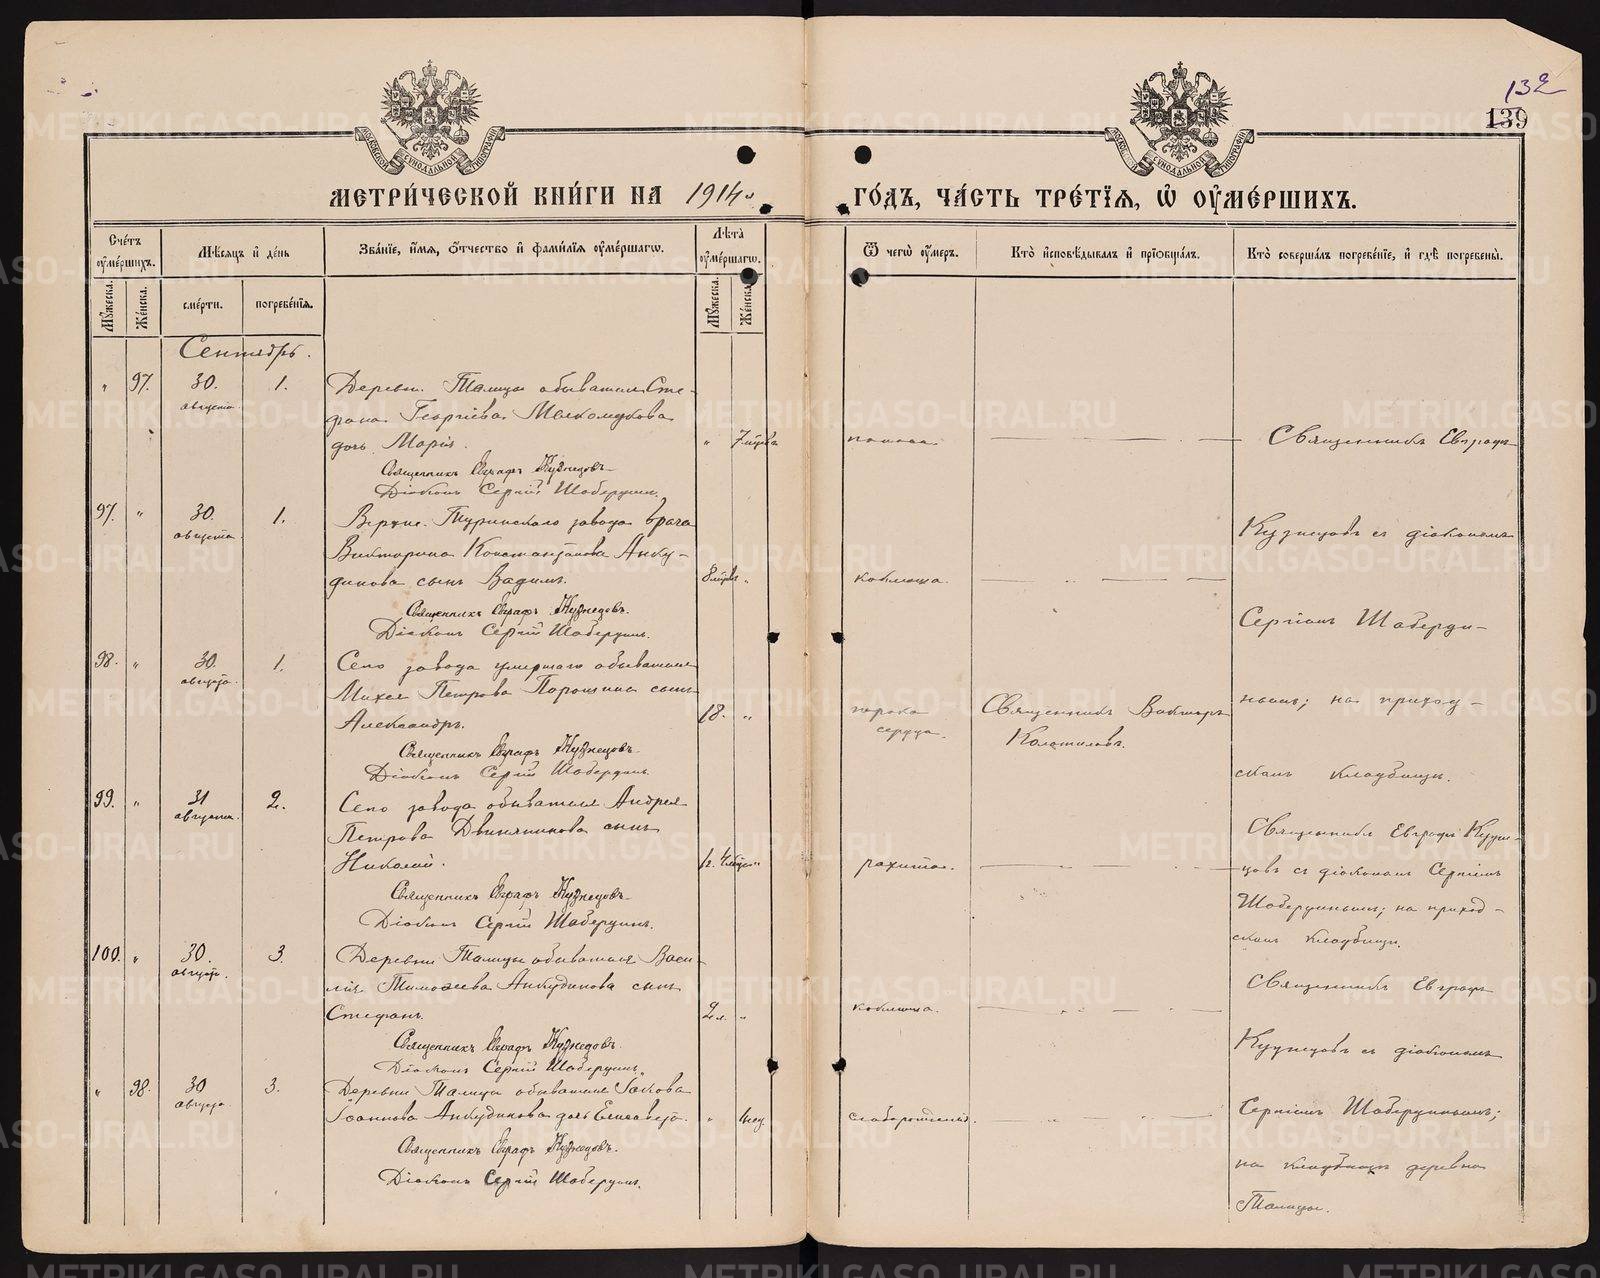 132
139
МЕТРИЧЕСКОЙ КНИГИ НА 1914 ГОДЪ, ЧАСТЬ ТРЕТІЯ, Ѡ ОУМЕРШИХЪ.
Счетъ оумершихъ.
Мѣсяцъ и день
Званіе, имя, отчество и фамилія оумершагѡ.
Лѣта оумершагѡ.
Ѿ чегѡ оумеръ.
Кто исповѣдывалъ и пріобщалъ.
Кто совершалъ погребеніе, и гдѣ погребены.
Мужеска.
Женска.
смерти.
погребенія.
Мужеска.
Женска.
Сентябрь.
" 97. 30. августа 1.
Деревни Талицы обывателя Сте-
фана Георгіева
дочь Марія.
" 7 мцевъ
Священникъ Евграфъ Кузнецовъ
Діаконъ Сергій Шабердинъ.
97. " 30. августа 1.
Верхне-Туринскаго завода врача
Викторина Константинова Анку-
динова сынъ Вадимъ.
8 мцевъ "
коклюша.
Священникъ Евграфъ Кузнецовъ.
Діаконъ Сергій Шабердинъ.
98. " 30. августа 1.
Сего завода умершаго обывателя
Петрова Порошина сынъ
Александръ.
18. "
порока сердца.
Священникъ Викторъ
Священникъ Евграфъ Кузнецовъ
Діаконъ Сергій Шабердинъ.
Священникъ Евграфъ
Кузнецовъ съ діакономъ
Сергіемъ Шаберди-
нымъ; на приход-
скомъ кладбищѣ.
99. " 31 августа. 2.
Сего завода обывателя Андрея
Петрова Двинянинова сынъ
Николай.
рахита.
Священникъ Евграфъ Кузнецовъ
Діаконъ Сергій Шабердинъ.
Священникъ Евграфъ Кузне-
цовъ съ діакономъ Сергіемъ
Шабердинымъ; на приход-
скомъ кладбищѣ.
100. " 30. августа. 3.
Деревни Талицы обывателя Васи-
лія Тимофеева Анкудинова сынъ
Стефанъ.
2 л. "
коклюша.
Священникъ Евграфъ Кузнецовъ.
Діаконъ Сергій Шабердинъ.
" 98. 30 августа. 3.
Деревни Талицы обывателя Іакова
Іоаннова Анкудинова дочь Елисавета.
" нед.
слаборожденія.
Священникъ Евграфъ Кузнецовъ.
Діаконъ Сергій Шабердинъ.
Священникъ Евграфъ
Кузнецовъ съ діакономъ
Сергіемъ Шабердинымъ;
на кладбищѣ деревни
Талицы.
METRIKI.GASO-URAL.RU